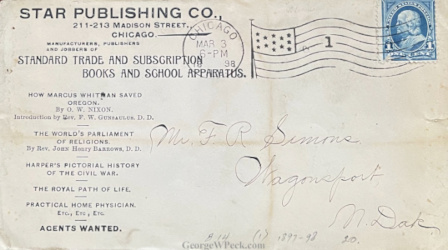 STAR PUBLISHING CO.,
211-213 MADISON STREET,
CHICAGO.
MANUFACTURERS, PUBLISHERS
AND JOBBERS OF
STANDARD TRADE AND SUBSCRIPTION
BOOKS AND SCHOOL APPARATUS.
HOW MARCUS WHITMAN SAVED
OREGON.
By O. W. NIXON.
Introduction by Rev. F. W. GUNSAULUS, D. D.
THE WORLD'S PARLIAMENT
OF RELIGIONS.
By Rev. JOHN HENRY BARROWS, D. D.
HARPER'S PICTORIAL HISTORY
OF THE CIVIL WAR.
THE ROYAL PATH OF LIFE.
PRACTICAL HOME PHYSICIAN.
ETC., ETC., ETC.
AGENTS WANTED.
CHICAGO
MAR 3
6-PM
98
1
1 1
Mr. F. R. Simons
Wagonsport
N. Dak.
GeorgeWPeck.com